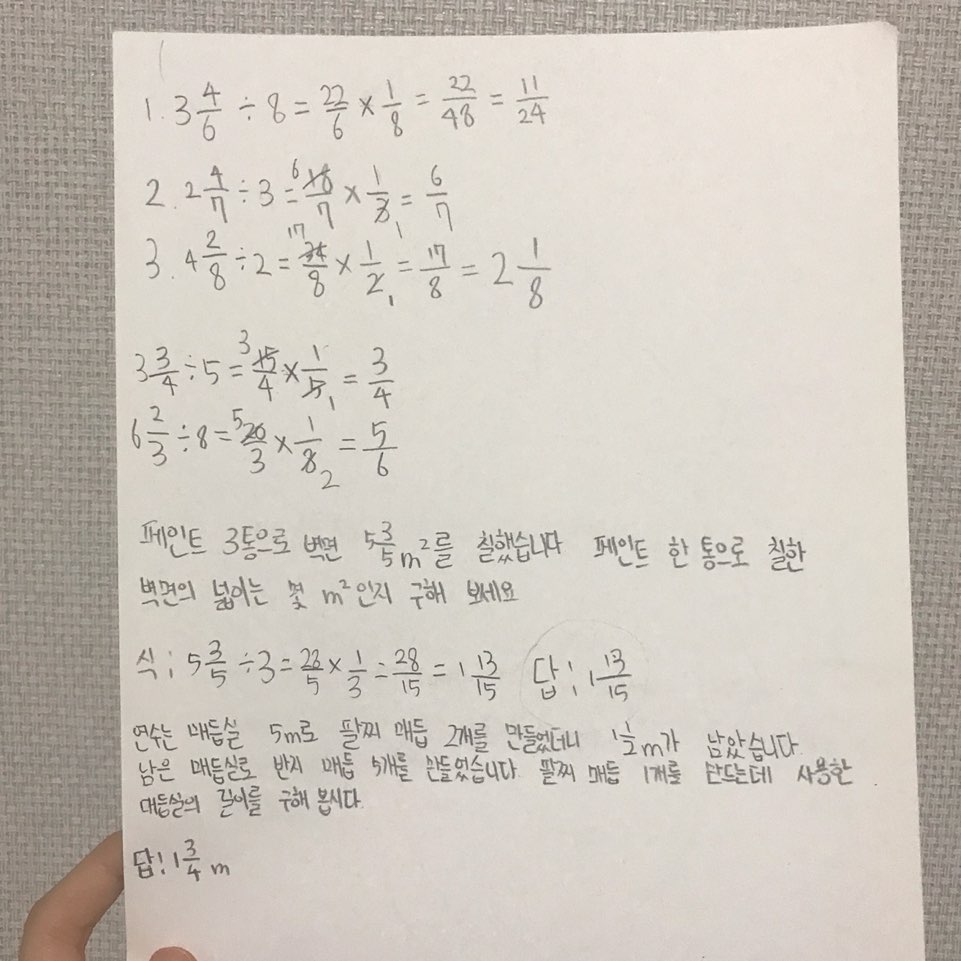 1. 3 4/6 ÷ 8 = 22/6 × 1/8 = 22/48 = 11/24
2. 2 4/7 ÷ 3 = 18/7 6 × 1/3 1 = 6/7
3. 4 2/8 ÷ 2 = 34/8 17 × 1/2 1 = 17/8 = 2 1/8
3 3/4 ÷ 5 = 15/4 3 × 1/5 1 = 3/4
6 2/3 ÷ 8 = 20/3 5 × 1/8 2 = 5/6
페인트 3통으로 벽면 5 3/5 m²를 칠했습니다 페인트 한 통으로 칠한
벽면의 넓이는 몇 m²인지 구해 보세요
식; 5 3/5 ÷ 3 = 28/5 × 1/3 = 28/15 = 1 13/15 답! 1 13/15
연수는 매듭실 5m로 팔찌 매듭 2개를 만들었더니 1 1/2 m가 남았습니다.
남은 매듭실로 반지 매듭 5개를 만들었습니다. 팔찌 매듭 1개를 만드는데 사용한
매듭실의 길이를 구해 봅시다.
답! 1 3/4 m